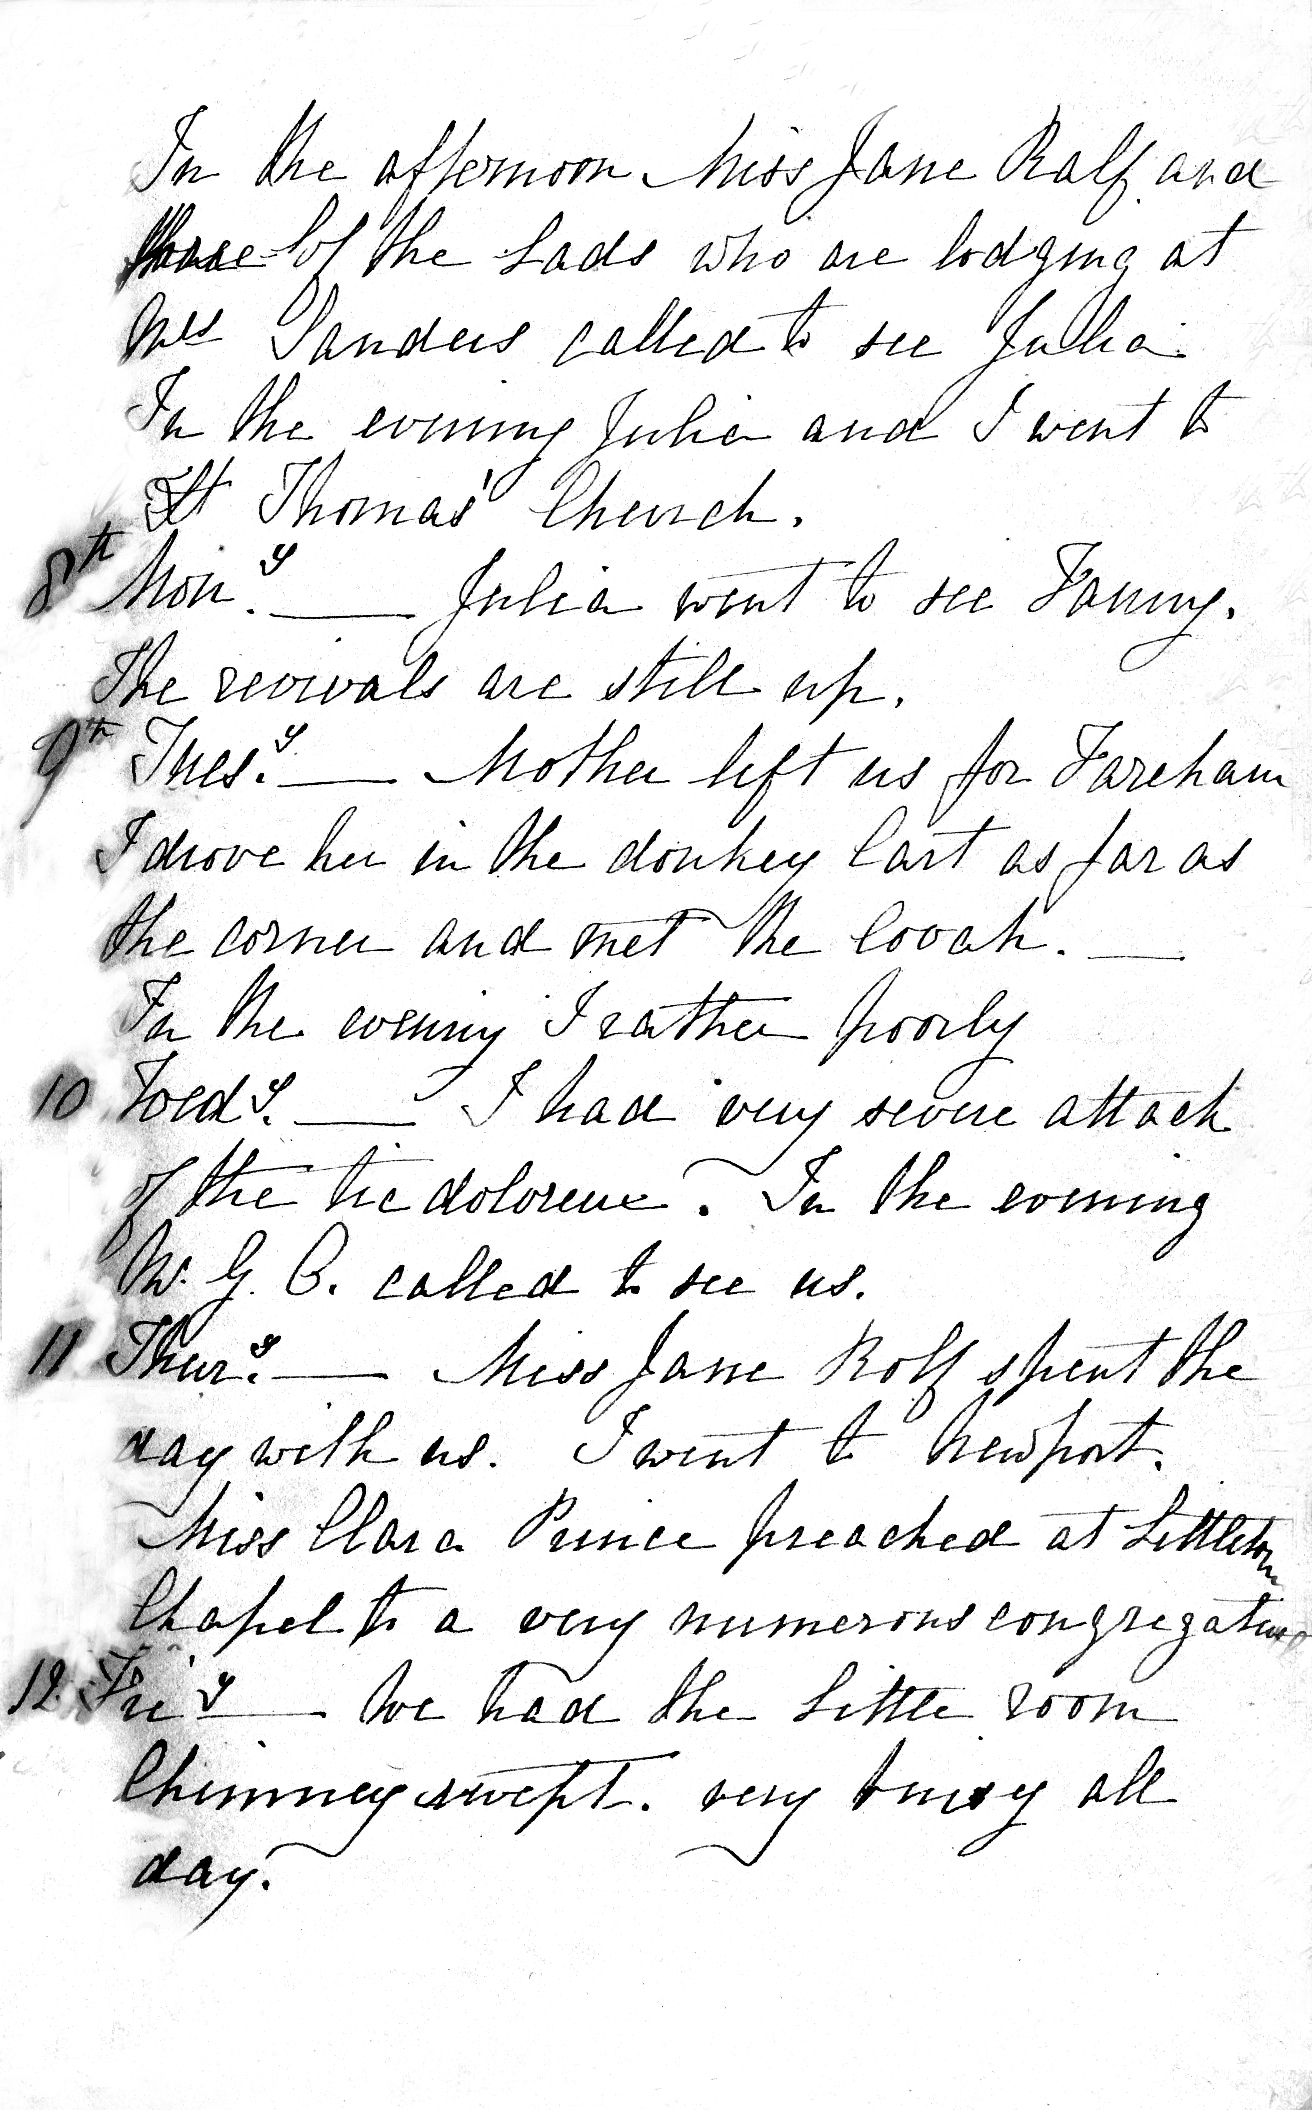 In the afternoon Miss Jane Rolf and
three of the Lads who are lodging at
Mrs Sanders called to see Julia.
In the evening Julia and I went to
St Thomas' Church.
8th Mon.y — Julia went to see Fanny.
The revivals are still up.
9th Tues.y — Mother left us for Fareham
I drove her in the donkey Cart as far as
the corner and met the Coach. —
In the evening I rather poorly
10 Wed.y — I had very severe attack
of the tic doloreux. In the evening
W. G. C. called to see us.
11 Thur.y — Miss Jane Rolf spent the
day with us. I went to Newport.
Miss Clara Prince preached at Littleton
Chapel to a very numerous congregation
12 Fri.y — We had the Little room
Chimney swept. very busy all
day.